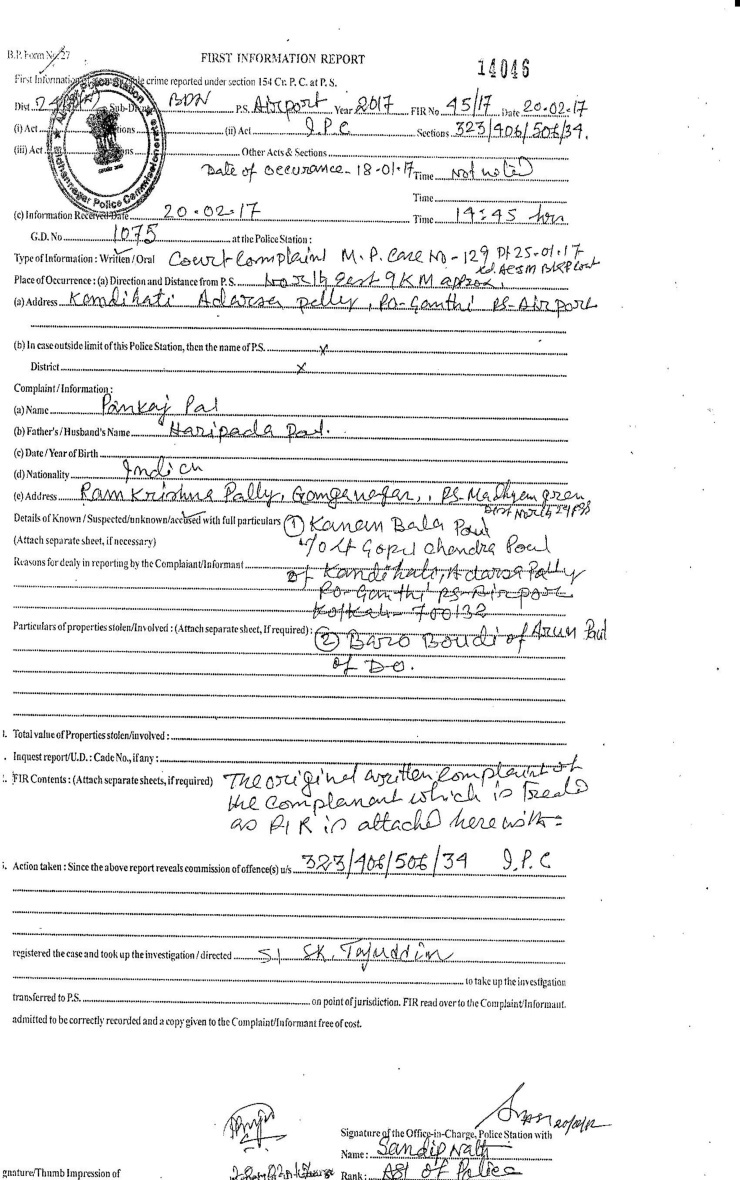 B.P. Form No. 27
FIRST INFORMATION REPORT
14046
First Information of cognizable crime reported under section 154 Cr. P. C. at P. S.
Dist. Sub-Divn. BDN P.S. Airport Year 2017 FIR No 45/17 Date 20-02-17
(i) Act Sections (ii) Act I.P.C Sections 323/406/506/34.
(iii) Act Sections Other Acts & Sections
Date of occurance- 18-01-17 Time Not noted
Time
(c) Information Received Date 20-02-17 Time 14:45 hrs
G.D. No 1075 at the Police Station :
Type of Information : Written / Oral Court Complaint M.P. Case No - 129 Dt 25-01-17
Ld. ACJM BKP Court
Place of Occurrence : (a) Direction and Distance from P.S. North East 9 KM approx,
(a) Address Kandihati Adarsa pally, Po-Ganthi PS-Airport
(b) In case outside limit of this Police Station, then the name of P.S. X
District X
Complaint / Information :
(a) Name Pankaj Pal
(b) Father's / Husband's Name Haripada Paul.
(c) Date / Year of Birth
(d) Nationality Indian
(e) Address Ram Krishna Pally, Ganganagar, PS-Madhyamgram
Dist North 24 PGS
Details of Known / Suspected/unknown/accused with full particulars (1) Kanan Bala Paul
(Attach separate sheet, if necessary) W/o Lt Gopal Chandra Paul
Reasons for dealy in reporting by the Complaiant/Informant of Kandihati, Adarsa Pally
Po-Ganthi PS-Airport
Kolkata-700132
Particulars of properties stolen/Involved : (Attach separate sheet, If required) : (2) Baro Boudi of Arun Paul
of Do.
Total value of Properties stolen/involved :
Inquest report/U.D. : Cade No., if any :
FIR Contents : (Attach separate sheets, if required) The original written complaint of
the complanant which is treated
as FIR is attached herewith=
Action taken : Since the above report reveals commission of offence(s) u/s 323/406/506/34 I.P.C
registered the case and took up the investigation / directed SI SK. Tajuddin
to take up the investigation
transferred to P.S. on point of jurisdiction. FIR read over to the Complaint/Informant.
admitted to be correctly recorded and a copy given to the Complaint/Informant free of cost.
Signature of the Office-in-Charge, Police Station with
Name : Sandip Nath
gnature/Thumb Impression of
Rank : ASI of Police